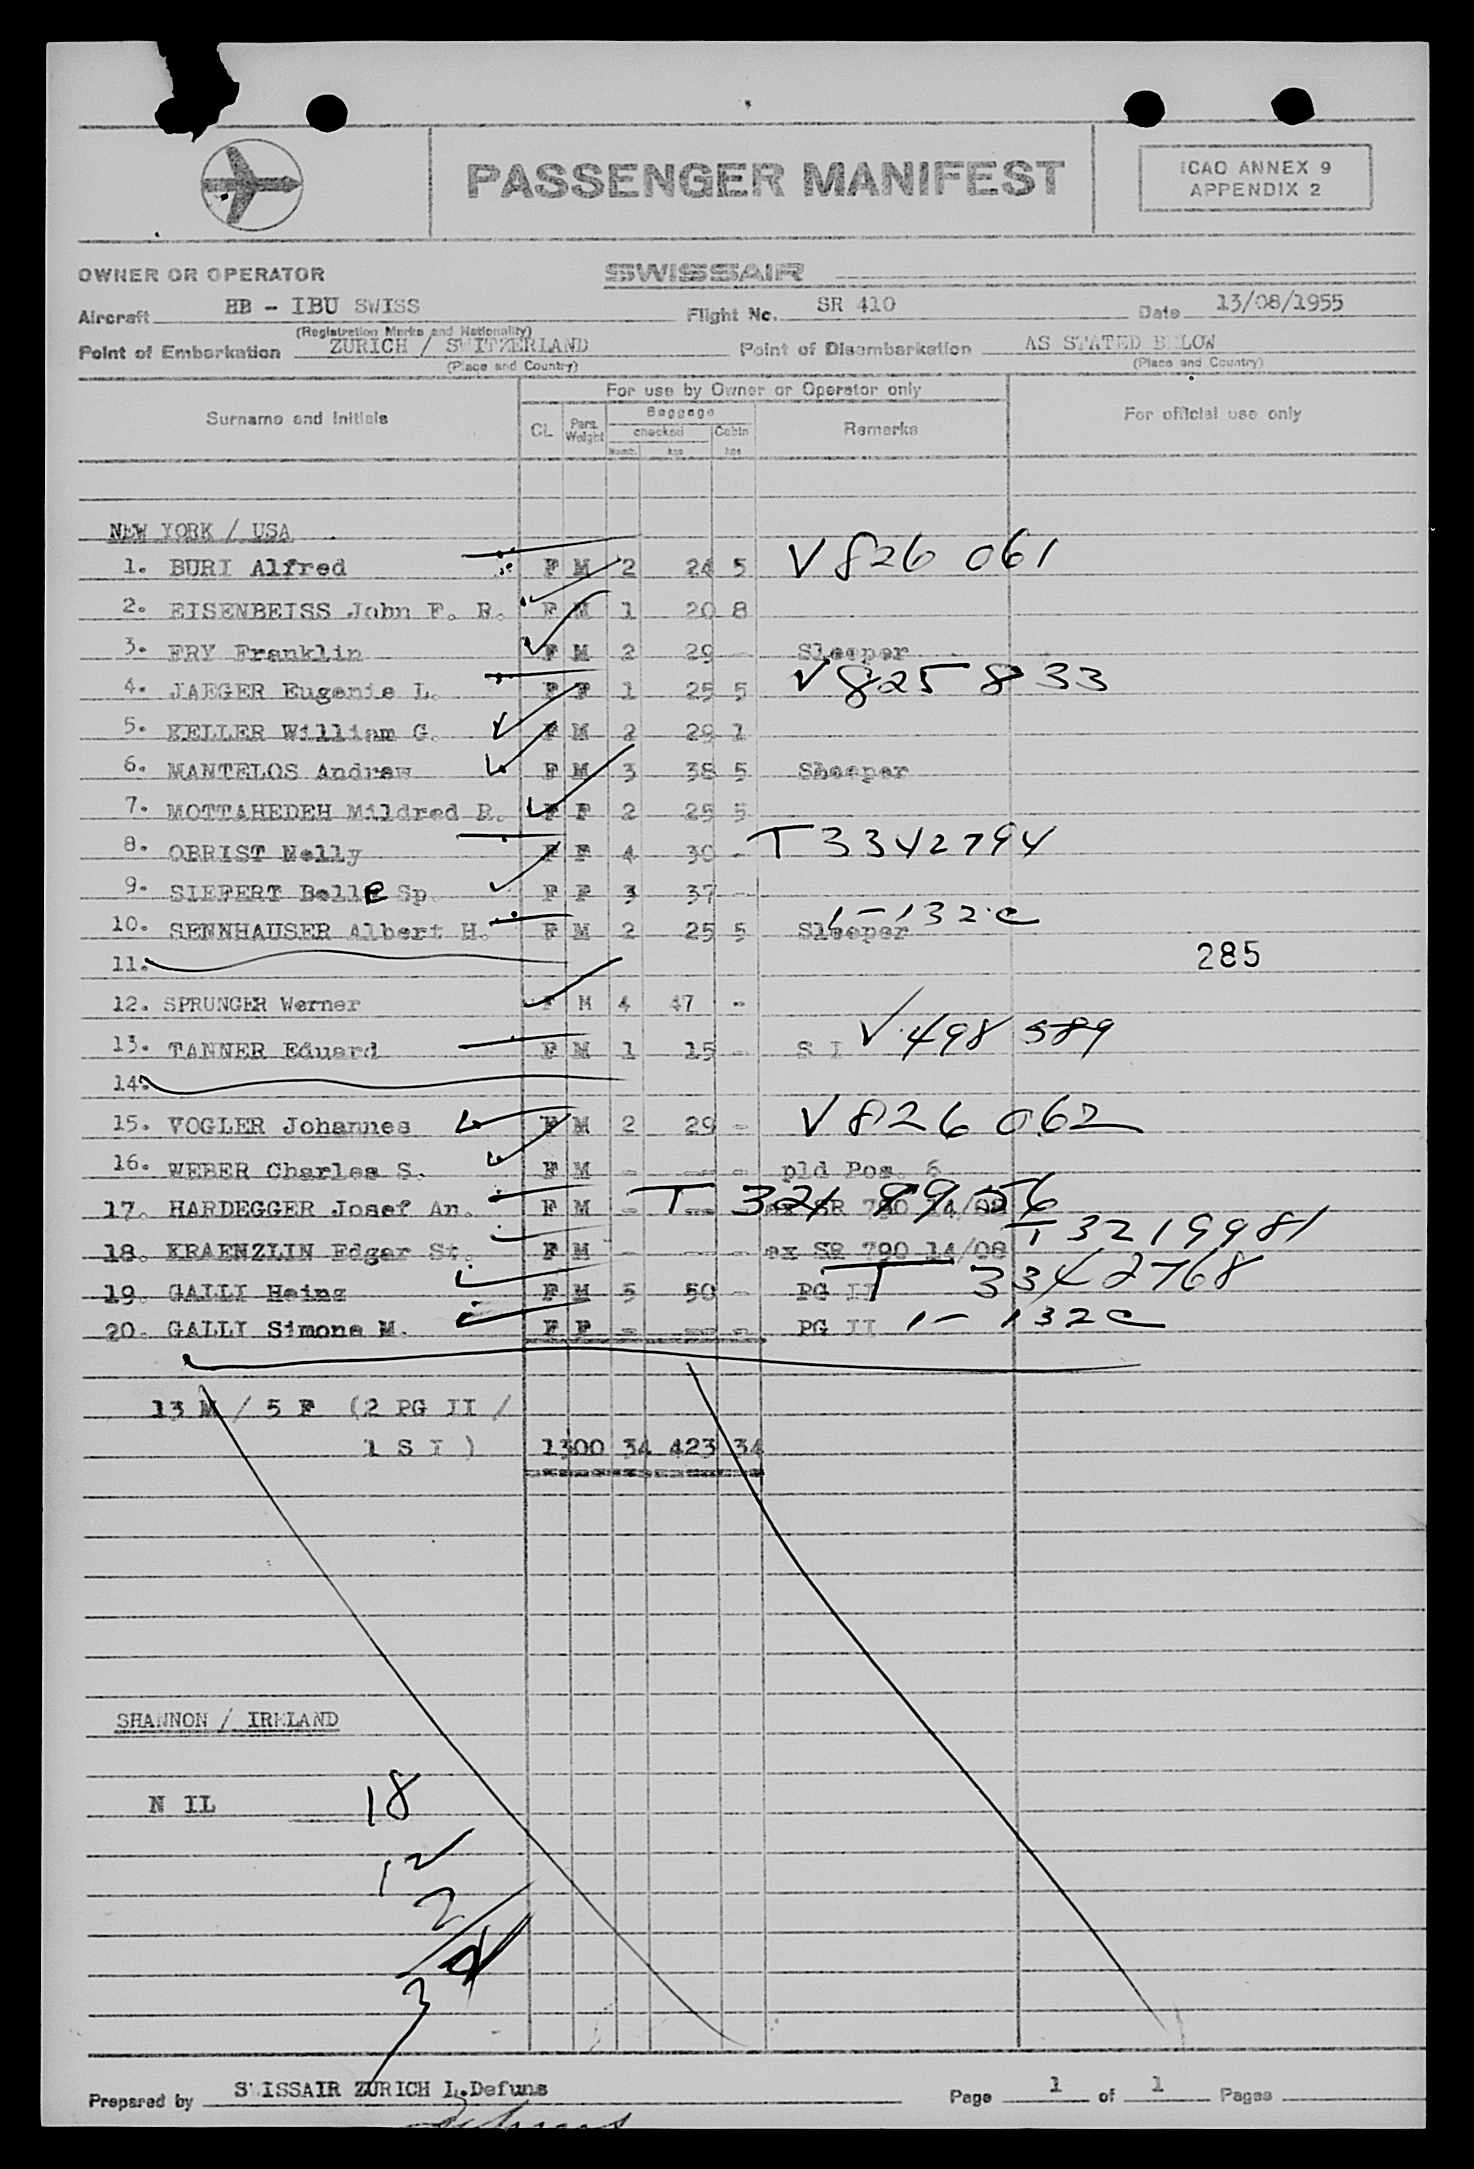 PASSENGER MANIFEST
ICAO ANNEX 9
APPENDIX 2
OWNER OR OPERATOR SWISSAIR
Aircraft HB - IBU SWISS Flight No. SR 410 Date 13/08/1955
(Registration Marks and Nationality)
Point of Embarkation ZURICH / SWITZERLAND Point of Disembarkation AS STATED BELOW
(Place and Country) (Place and Country)
For use by Owner or Operator only
Surname and Initials CL Pers. Weight Baggage checked Numb. kgs Cabin kgs Remarks For official use only
NEW YORK / USA
1. BURI Alfred F M 2 24 5 V 826 061
2. EISENBEISS John F. R. F M 1 20 8
3. FRY Franklin F M 2 29 - Sleeper
4. JAEGER Eugenie L. F F 1 25 5 V 825 833
5. KELLER William G. F M 2 29 1
6. MANTELOS Andrew F M 3 38 5 Sheeper
7. MOTTAHEDEH Mildred R. F F 2 25 5
8. OBRIST Nelly F F 4 30 - T 3342794
9. SIEFERT Belle Sp. F F 3 37 -
10. SENNHAUSER Albert H. F M 2 25 5 Sleeper 1-132c
11.
285
12. SPRUNGER Werner F M 4 47 -
13. TANNER Eduard F M 1 15 - S I V 498 589
14.
15. VOGLER Johannes F M 2 29 - V 826 062
16. WEBER Charles S. F M - -- - pld Pos. 6
17. HARDEGGER Josef An. F M - -- ex SR 790 14/08 T
18. KRAENZLIN Edgar St. F M - -- - ex SR 790 14/08 T 3219981
19. GALLI Heinz F M 5 50 - PG II T 3342768
20. GALLI Simone M. F F - -- - PG II 1-132c
13 M / 5 F (2 PG II /
1 S I ) 1300 34 423 34
SHANNON / IRELAND
N IL 18
12
2
3
Prepared by SWISSAIR ZURICH L.Defuns Page 1 of 1 Pages